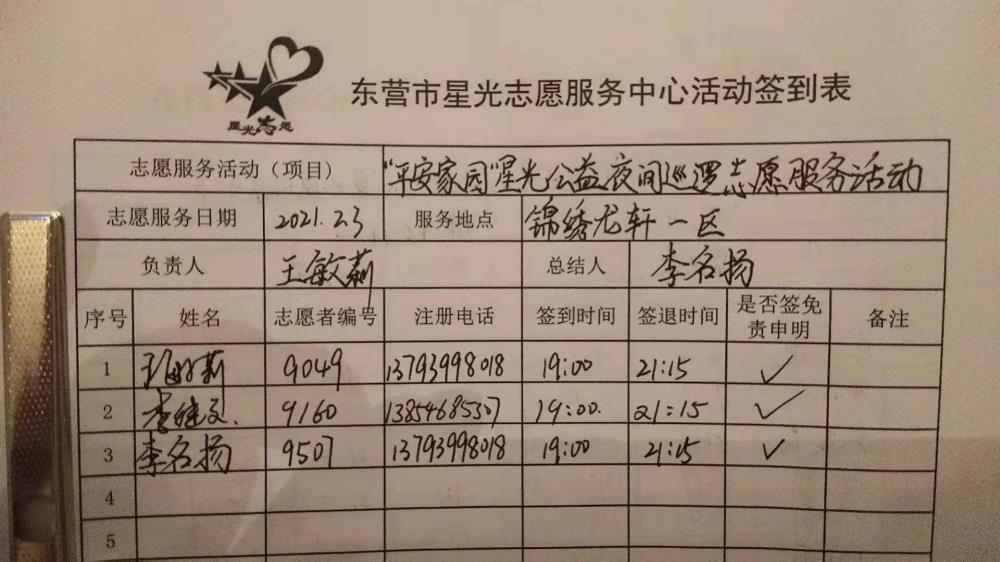 星光志愿
东营市星光志愿服务中心活动签到表
志愿服务活动（项目） “平安家园”星光公益夜间巡逻志愿服务活动
志愿服务日期 2021.2.3 服务地点 锦绣龙轩一区
负责人 王敏莉 总结人 李名扬
序号 姓名 志愿者编号 注册电话 签到时间 签退时间 是否签免责申明 备注
1 王敏莉 9049 13793998018 19:00 21:15 ✓
2 李继文 9160 13854685307 19:00. 21:15 ✓
3 李名扬 9507 13793998018 19:00 21:15 ✓
4
5